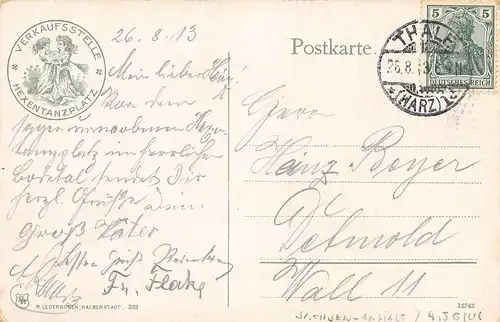 VERKAUFSSTELLE
HEXENTANZPLATZ
26. 8. 13
Mein lieber Heinz!
Von dem
sagenumwobenen Hexen-
tanzplatz im herrlichen
Bodetal sendet Dir
herzl. Grüße Dein
Groß Vater
Fr. Flake
R. LEDERBOGEN, HALBERSTADT. 333
Postkarte.
THALE
26.8.13
(HARZ)
5 5
DEUTSCHES REICH
Herrn
Heinz Beyer
Detmold
Wall 11
12743
SACHSEN-ANHALT /